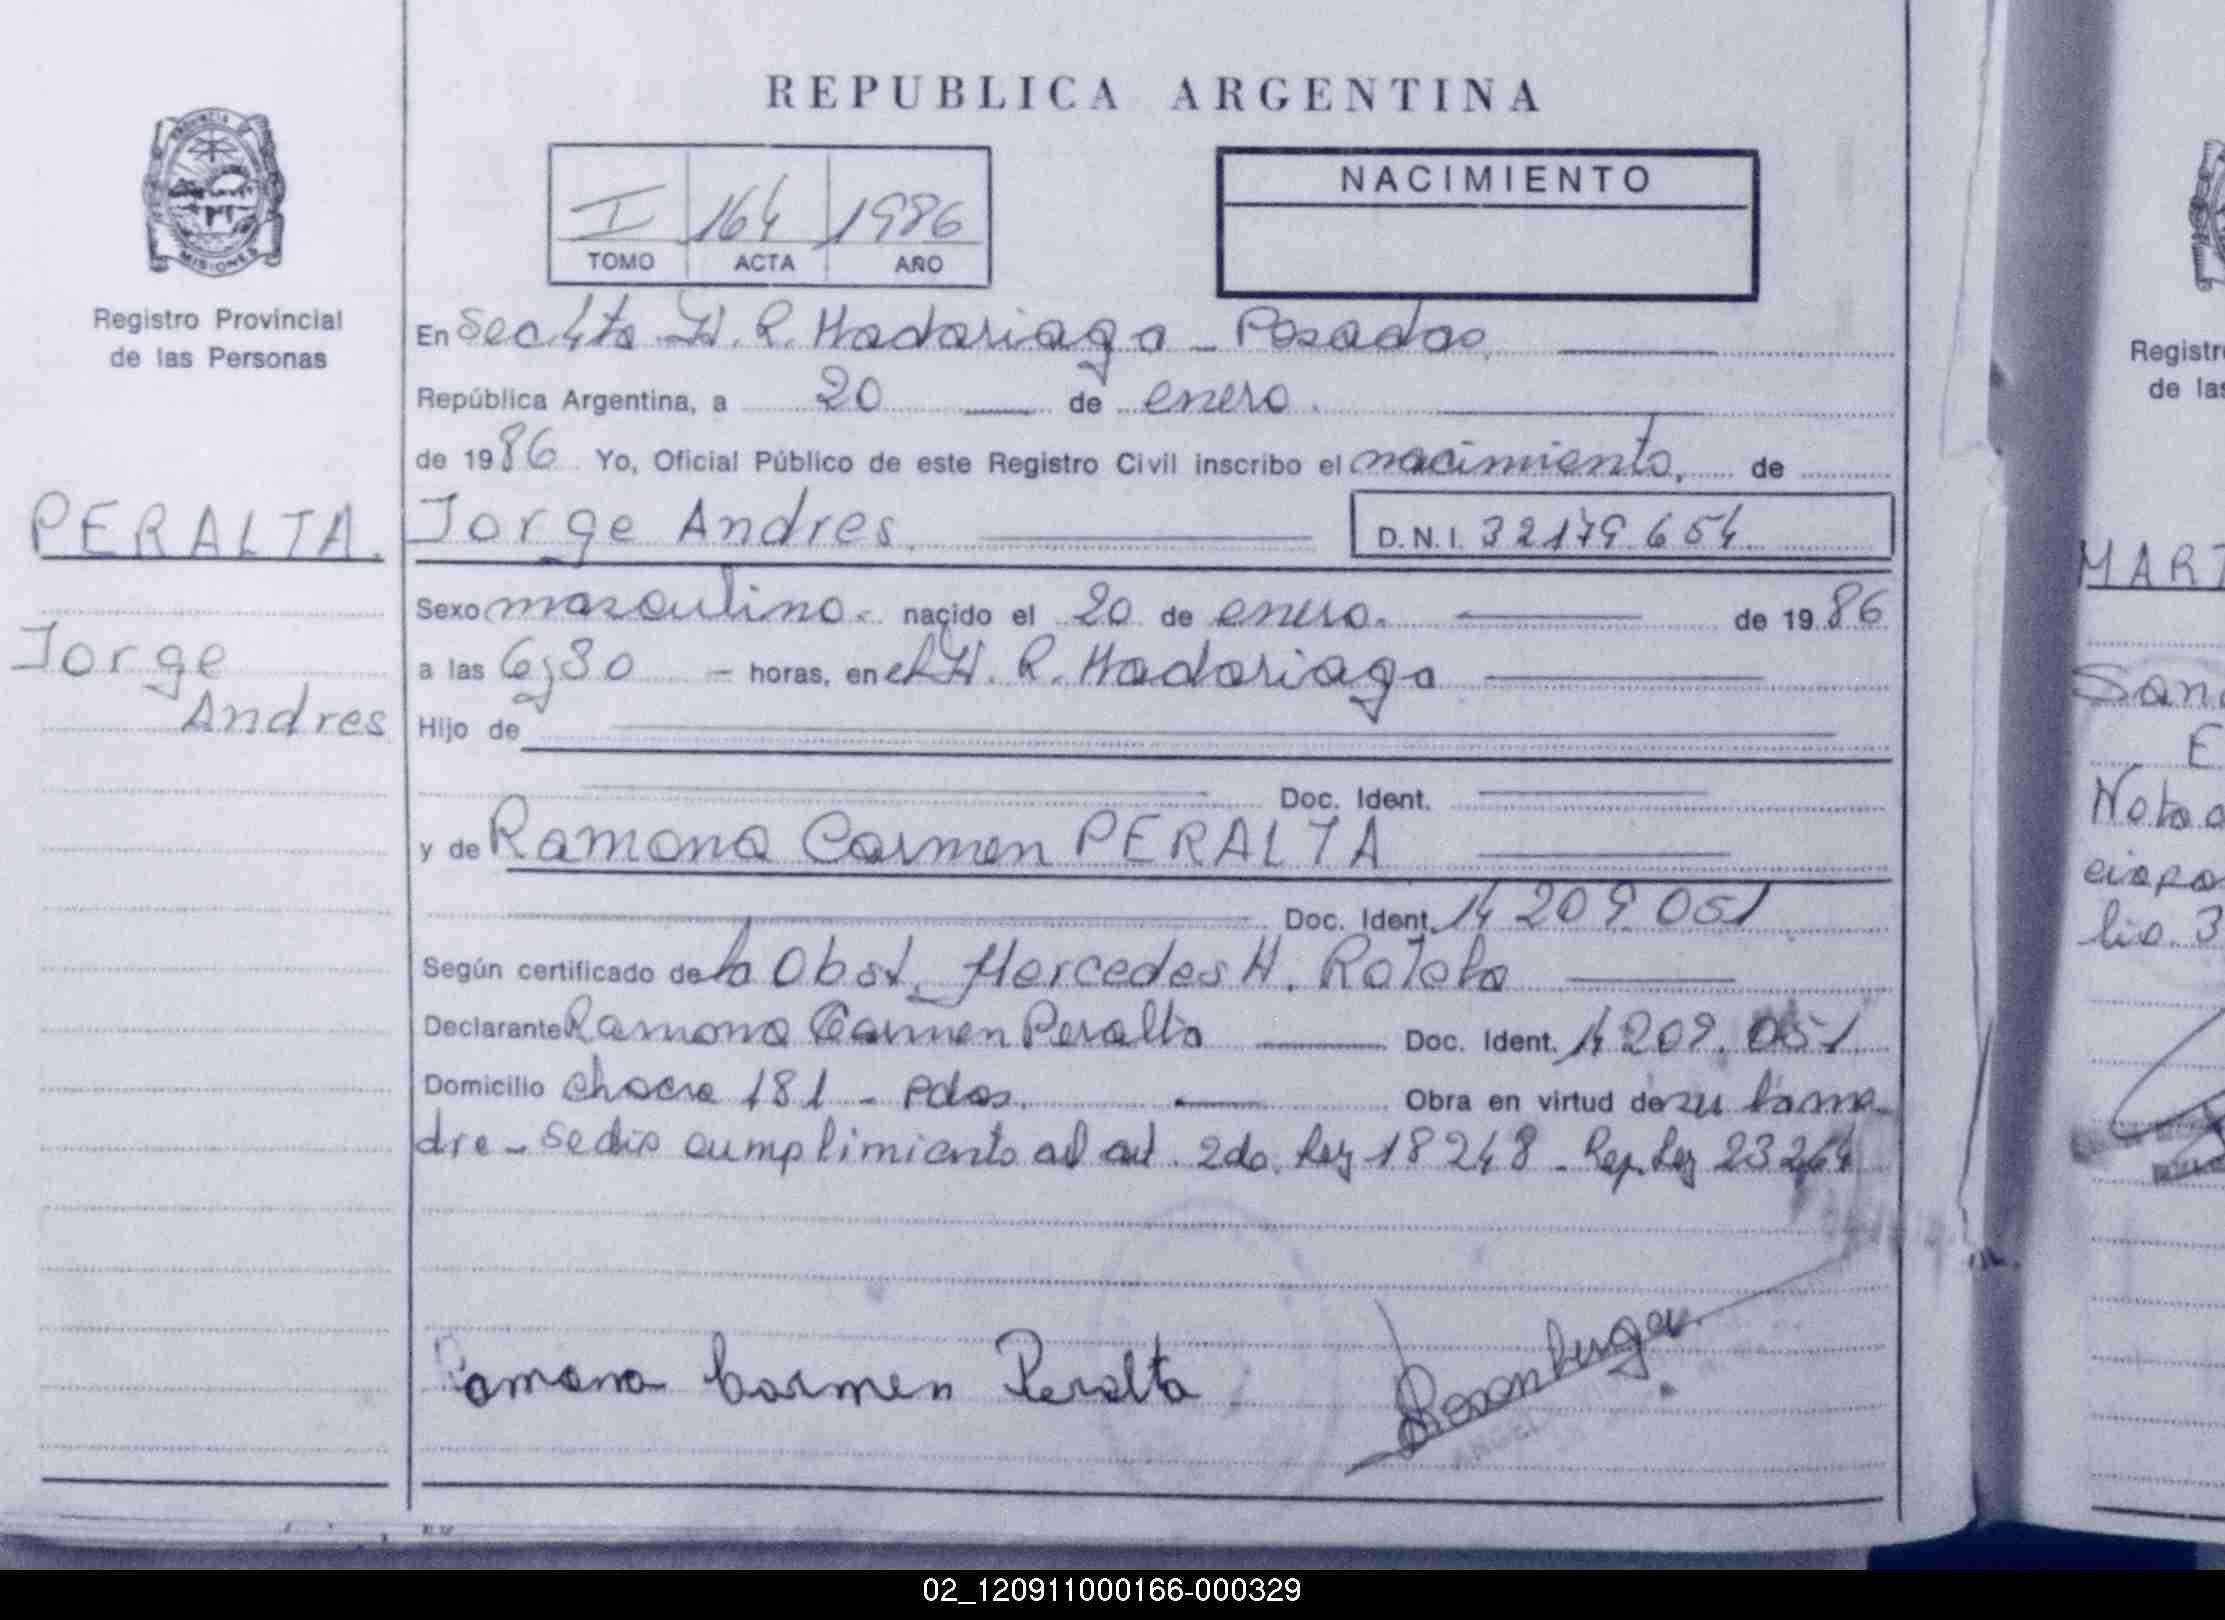 REPUBLICA ARGENTINA
PROVINCIA
MISIONES
Registro Provincial
de las Personas
I 164 1986
TOMO ACTA AÑO
NACIMIENTO
En Sec 4ta H. R. Madariaga - Posadas.
República Argentina, a 20 de enero.
de 1986 Yo, Oficial Público de este Registro Civil inscribo el nacimiento, de
PERALTA.
Jorge Andres.
D.N.I. 32179654
Jorge
Andres
Sexo masculino. nacido el 20 de enero. de 1986
a las 6,30 - horas, en el H. R. Madariaga
Hijo de
Doc. Ident.
y de Ramona Carmen PERALTA
Doc. Ident. 14 209.051
Según certificado de la Obst. Mercedes H.
Declarante Ramona Carmen Peralta Doc. Ident. 14 209.051
Domicilio chacra 181 - Pdas. Obra en virtud de su la ma-
dre - Se dio cumplimiento al art. 2do. Ley 18248 - Rep. Ley 23264
Ramona Carmen Peralta
Registr
de las
MART
02_120911000166-000329